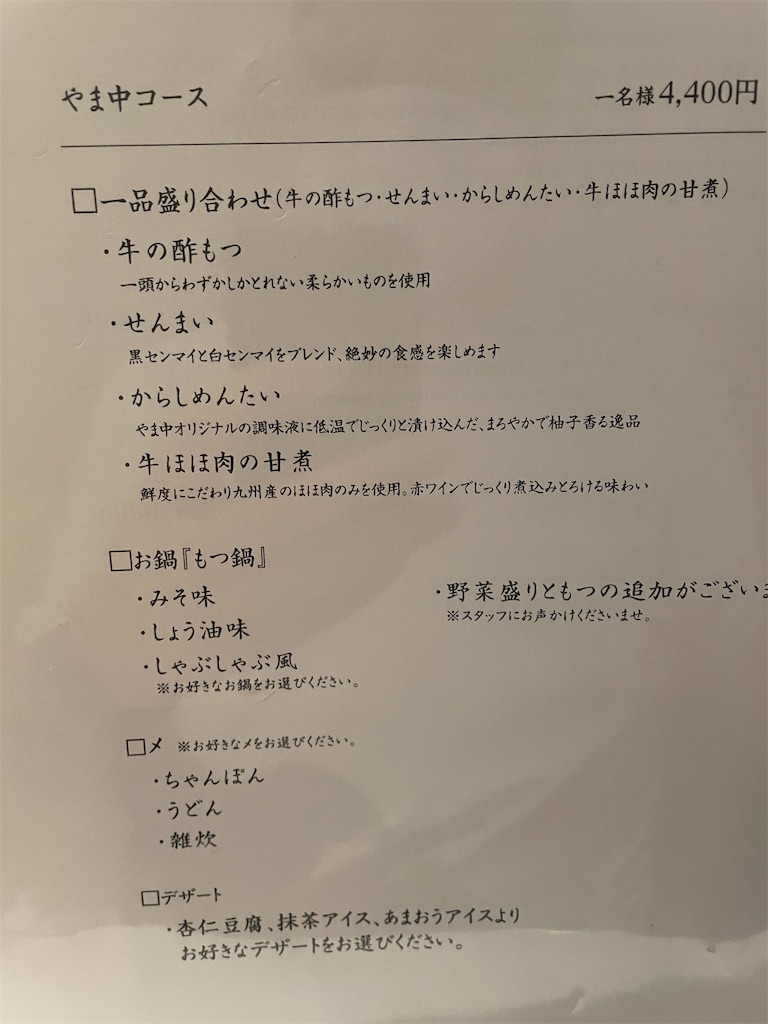 やま中コース 一名様4,400円
□一品盛り合わせ(牛の酢もつ・せんまい・からしめんたい・牛ほほ肉の甘煮)
・牛の酢もつ
一頭からわずかしかとれない柔らかいものを使用
・せんまい
黒センマイと白センマイをブレンド、絶妙の食感を楽しめます
・からしめんたい
やま中オリジナルの調味液に低温でじっくりと漬け込んだ、まろやかで柚子香る逸品
・牛ほほ肉の甘煮
鮮度にこだわり九州産のほほ肉のみを使用。赤ワインでじっくり煮込みとろける味わい
□お鍋『もつ鍋』
・みそ味
・しょう油味
・しゃぶしゃぶ風
※お好きなお鍋をお選びください。
・野菜盛りともつの追加がござい
※スタッフにお声かけくださいませ。
□〆 ※お好きな〆をお選びください。
・ちゃんぽん
・うどん
・雑炊
□デザート
・杏仁豆腐、抹茶アイス、あまおうアイスより
お好きなデザートをお選びください。